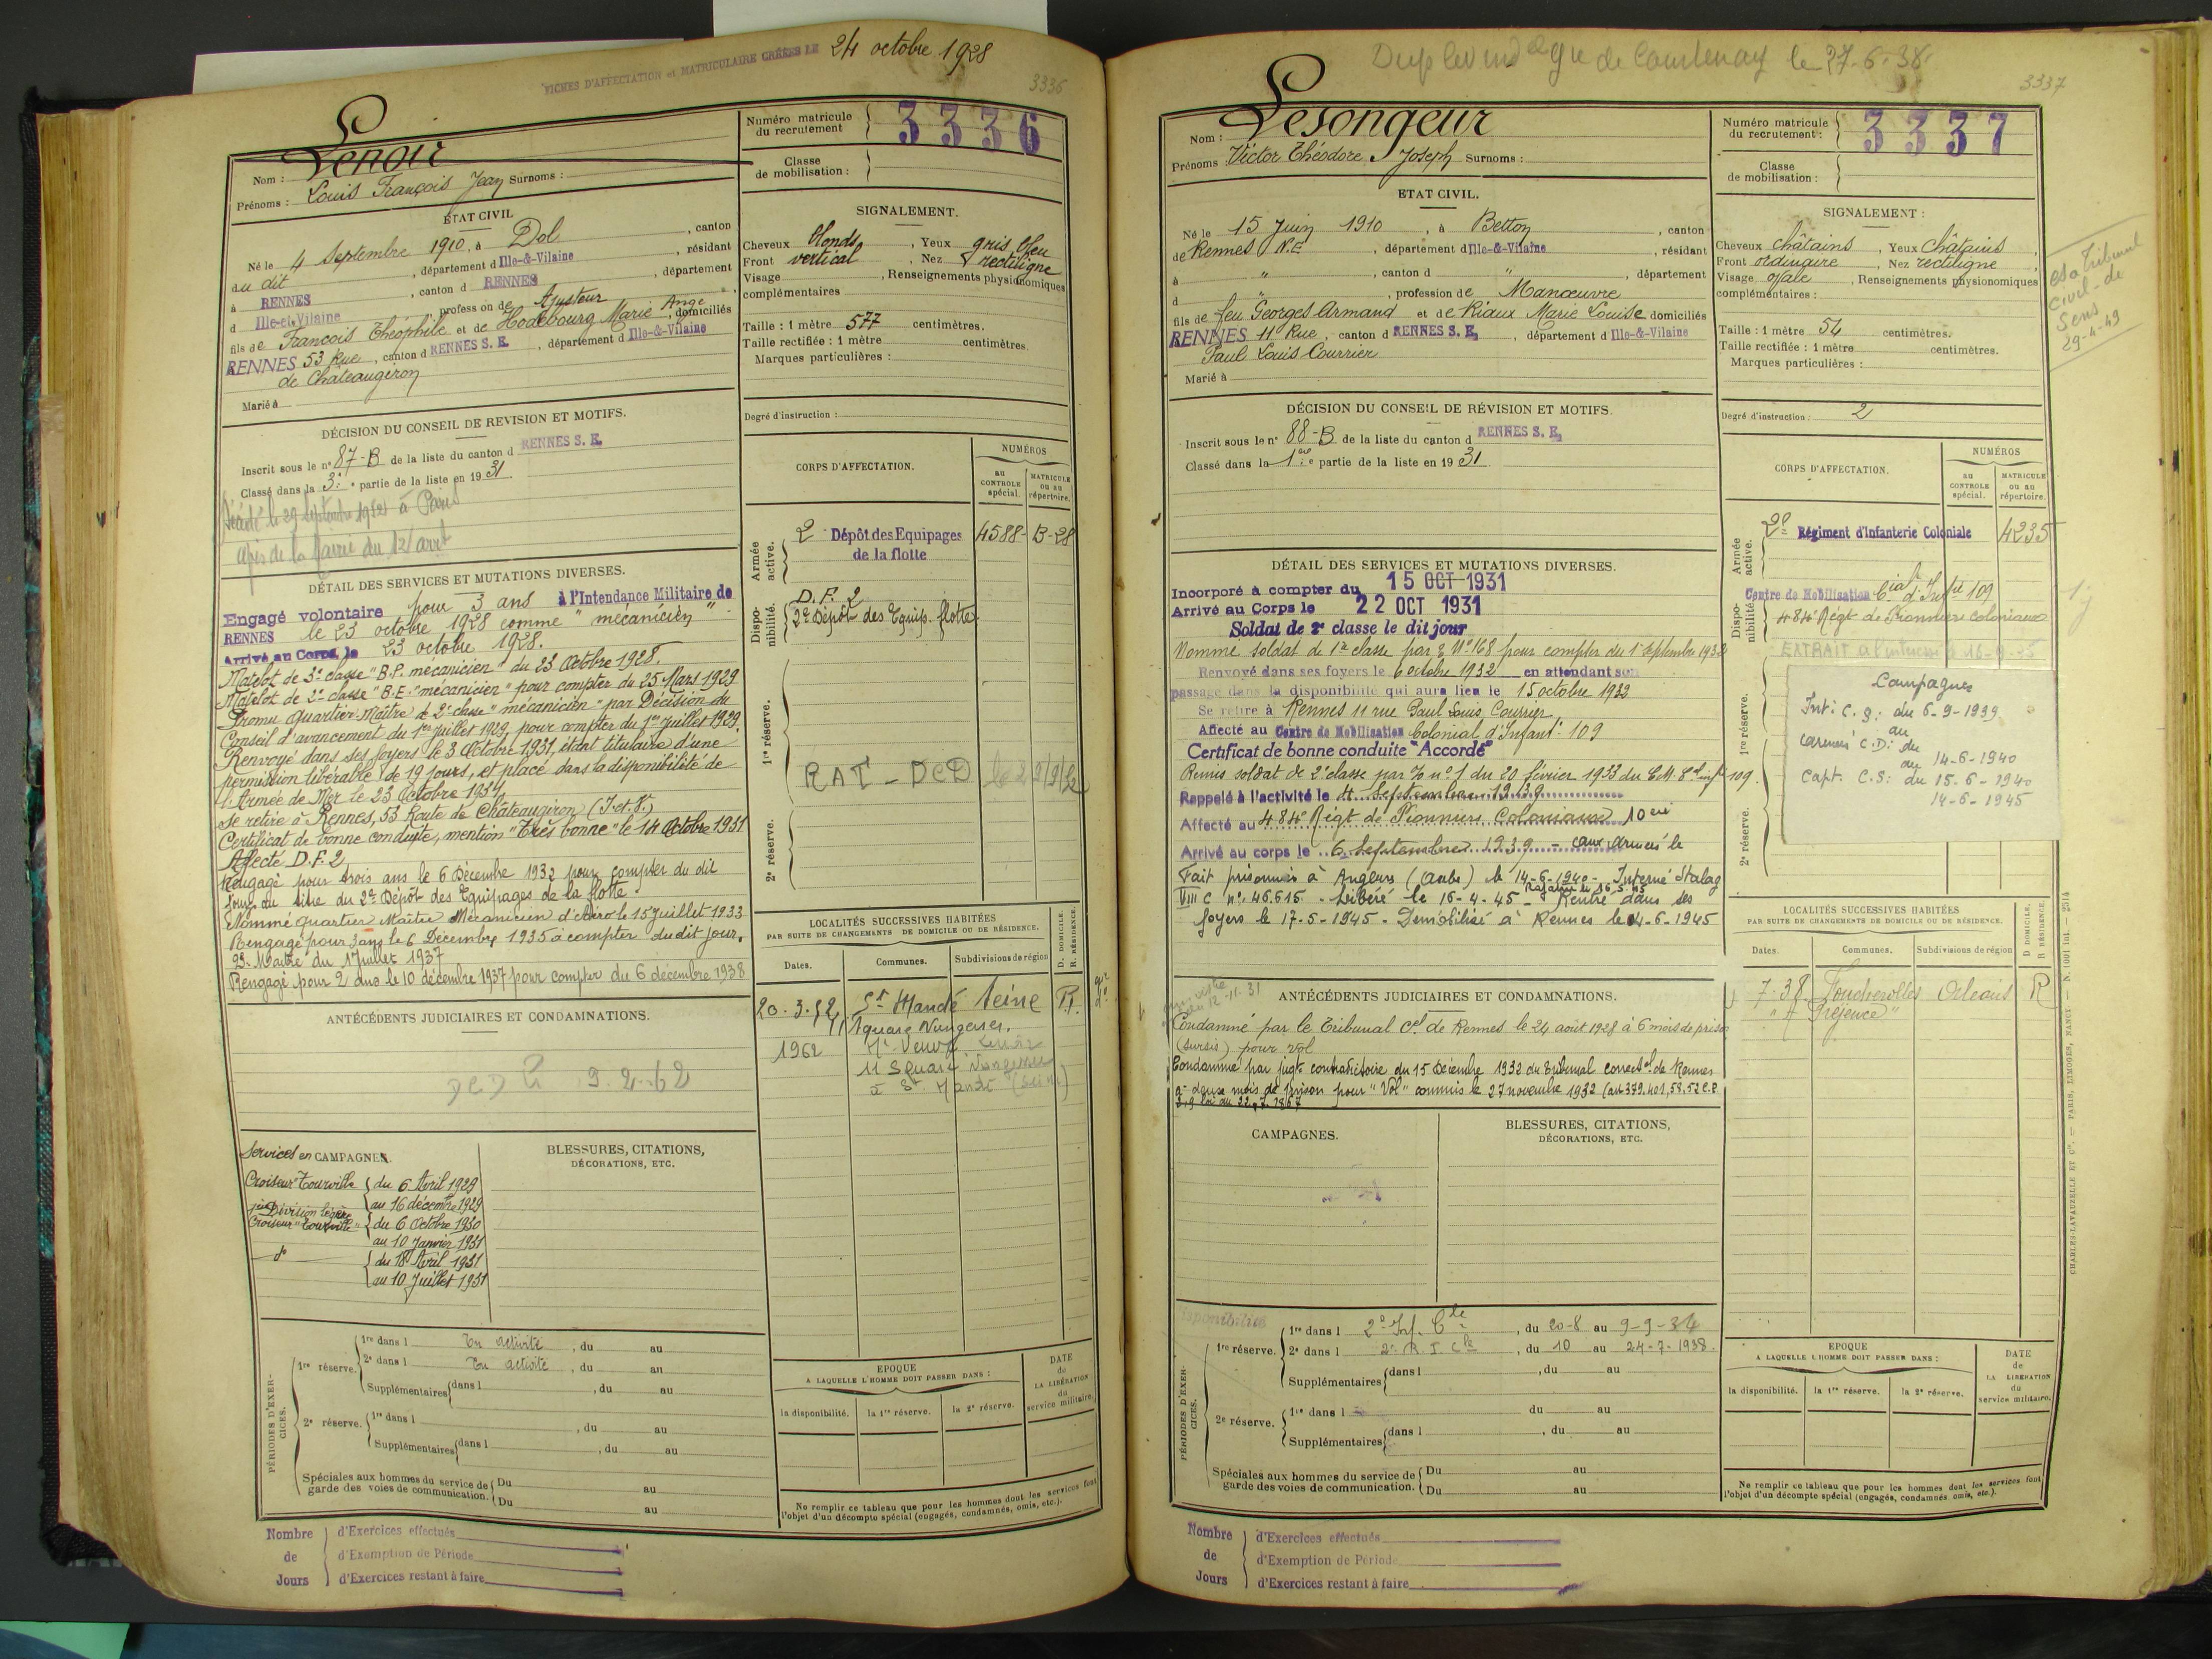 FICHES D'AFFECTATION et MATRICULAIRE CRÉÉES LE 24 octobre 1928
3336
Nom : Lenoir
Prénoms : Louis François Jean Surnoms :
Numéro matricule du recrutement 3336
Classe de mobilisation :
ÉTAT CIVIL
Né le 4 Septembre 1910, à Dol, canton
du dit, département d Ille-&-Vilaine, résidant
à RENNES, canton d RENNES, département
d Ille-et-Vilaine, profession de Ajusteur
fils de François Théophile et de Hodebourg Marie Ange, domiciliés
RENNES 53 Rue, canton d RENNES S. E., département d Ille-&-Vilaine
de Châteaugiron
Marié à
SIGNALEMENT.
Cheveux blonds, Yeux gris bleu
Front vertical, Nez rectiligne
Visage, Renseignements physionomiques
complémentaires
Taille : 1 mètre 577 centimètres.
Taille rectifiée : 1 mètre centimètres.
Marques particulières :
Degré d'instruction :
DÉCISION DU CONSEIL DE REVISION ET MOTIFS.
Inscrit sous le n° 87-B de la liste du canton d RENNES S. E.
Classé dans la 3e partie de la liste en 1931
Décédé le 29 septembre 1952 à Paris
de la Mairie du 12 arrt
CORPS D'AFFECTATION.
NUMÉROS
au CONTROLE spécial.
MATRICULE ou au répertoire.
Armée active.
2 Dépôt des Equipages de la flotte 4588-B-28
Disponibilité.
D.F. 2
2e Dépôt des Equip. flotte
1re réserve.
RAT - DCD
2e réserve.
DÉTAIL DES SERVICES ET MUTATIONS DIVERSES.
Engagé volontaire pour 3 ans à l'Intendance Militaire de
RENNES le 23 octobre 1928 comme "mécanicien"
Arrivé au Corps le 23 octobre 1928.
Matelot de 3e classe "B.P. mécanicien" du 23 Octobre 1928.
Matelot de 2e classe "B.E. mécanicien" pour compter du 25 Mars 1929
Promu Quartier-Maître de 2e classe "mécanicien" par Décision du
Conseil d'avancement du 1er juillet 1929, pour compter du 1er juillet 1929.
Renvoyé dans ses foyers le 3 Octobre 1931, étant titulaire d'une
permission libérable de 19 jours, et placé dans la disponibilité de
l'Armée de Mer le 23 Octobre 1931.
Se retire à Rennes, 53 Route de Châteaugiron (I-et-V.)
Certificat de bonne conduite, mention "Très bonne" le 14 Octobre 1931
Affecté D.F. 2
Rengagé pour trois ans le 6 Décembre 1932 pour compter du dit
jour au titre du 2e Dépôt des Equipages de la flotte.
Nommé Quartier Maître Mécanicien d'Aéro le 15 Juillet 1933
Rengagé pour 3 ans le 6 Décembre 1935 à compter du dit jour.
Maître du 1 Juillet 1937
Rengagé pour 2 ans le 10 décembre 1937 pour compter du 6 décembre 1938
LOCALITÉS SUCCESSIVES HABITÉES
PAR SUITE DE CHANGEMENTS DE DOMICILE OU DE RÉSIDENCE.
Dates. Communes. Subdivisions de région D. DOMICILE. R. RÉSIDENCE.
20.3.52 St Mandé Seine R.
11 Square Nungesser.
1962 Me Veuve Lenoir
11 Square Nungesser
à St Mandé (Seine)
ANTÉCÉDENTS JUDICIAIRES ET CONDAMNATIONS.
DCD 9.2.62
Services en CAMPAGNES.
Croiseur "Tourville" du 6 Avril 1929
au 16 décembre 1929
Division légère
Croiseur "Tourville" du 6 Octobre 1930
au 10 Janvier 1931
do du 18 Avril 1931
au 10 Juillet 1931
BLESSURES, CITATIONS,
DÉCORATIONS, ETC.
PÉRIODES D'EXERCICES.
1re réserve. 1re dans l En activité, du au
2e dans l En activité, du au
Supplémentaires dans l, du au
2e réserve. 1re dans l, du au
Supplémentaires dans l, du au
Spéciales aux hommes du service de garde des voies de communication. Du au
Du au
EPOQUE
A LAQUELLE L'HOMME DOIT PASSER DANS :
la disponibilité. la 1re réserve. la 2e réserve.
DATE de LA LIBÉRATION du service militaire.
Ne remplir ce tableau que pour les hommes dont les services font
l'objet d'un décompte spécial (engagés, condamnés, omis, etc.).
Nombre de Jours
d'Exercices effectués
d'Exemption de Période
d'Exercices restant à faire
de Courtenay le 27-6-38.
3337
Nom : Lesongeur
Prénoms : Victor Théodore Joseph Surnoms :
Numéro matricule du recrutement : 3337
Classe de mobilisation :
ETAT CIVIL.
Né le 15 Juin 1910, à Betton, canton
de Rennes N.E, département d Ille-&-Vilaine, résidant
à ", canton d ", département
d, profession de Manœuvre
fils de feu Georges Armand et de Riaux Marie Louise domiciliés
RENNES 11 Rue, canton d RENNES S. E., département d Ille-&-Vilaine
Paul Louis Courrier
Marié à
SIGNALEMENT :
Cheveux châtains, Yeux châtains
Front ordinaire, Nez rectiligne
Visage ovale, Renseignements physionomiques
complémentaires :
Taille : 1 mètre 54 centimètres.
Taille rectifiée : 1 mètre centimètres.
Marques particulières :
Degré d'instruction : 2
Tribunal
civil de
Sens
29-4-49
DÉCISION DU CONSEIL DE RÉVISION ET MOTIFS.
Inscrit sous le n° 88-B de la liste du canton d RENNES S. E.
Classé dans la 1ère partie de la liste en 1931
CORPS D'AFFECTATION.
NUMÉROS
au CONTROLE spécial.
MATRICULE ou au répertoire.
Armée active.
2e Régiment d'Infanterie Coloniale 4235
Disponibilité.
Centre de Mobilisation Cial d'Inftie 109
484e Régt de Pionniers coloniaux
EXTRAIT
1re réserve.
2e réserve.
Campagnes
Int: C.S: du 6-9-1939
au
armées C.D: du
au 14-6-1940
Capt. C.S: du 15-6-1940
14-6-1945
DÉTAIL DES SERVICES ET MUTATIONS DIVERSES.
Incorporé à compter du 15 OCT 1931
Arrivé au Corps le 22 OCT 1931
Soldat de 2e classe le dit jour
Nommé soldat de 1re classe par N°168 pour compter du 1 Septembre 1932
Renvoyé dans ses foyers le 6 octobre 1932 en attendant son
passage dans la disponibilité qui aura lieu le 15 octobre 1932
Se retire à Rennes 11 rue Paul Louis Courrier
Affecté au Centre de Mobilisation Colonial d'Infant. 109
Certificat de bonne conduite "Accordé"
Remis soldat de 2e classe par n° 1 du 20 février 1933 du C.M. 109.
Rappelé à l'activité le 4 Septembre 1939
Affecté au 484e Régt de Pionniers Coloniaux 10 cie
Arrivé au corps le 6 Septembre 1939 - aux armées le
Fait prisonnier à Anglure (Aube) le 14-6-1940 - Interné Stalag
VIII C n° 46.615 - Libéré le 16-4-45 - Rapatrié le 16-5-45 Rentré dans ses
foyers le 17-5-1945 - Démobilisé à Rennes le 14-6-1945
LOCALITÉS SUCCESSIVES HABITÉES
PAR SUITE DE CHANGEMENTS DE DOMICILE OU DE RÉSIDENCE.
Dates. Communes. Subdivisions de région D DOMICILE. R RÉSIDENCE.
7-38 Foucherolles Orléans R
ANTÉCÉDENTS JUDICIAIRES ET CONDAMNATIONS.
Condamné par le Tribunal Cel de Rennes le 24 août 1928 à 6 mois de prison
(sursis) pour vol
Condamné par jugt contradictoire du 15 Décembre 1932 du Tribunal correctel de Rennes
à deux mois de prison pour "Vol" commis le 27 novembre 1932 (art 379, 401, 58, 52 C.P.
3, 9 loi du 22.7.1867
CAMPAGNES.
BLESSURES, CITATIONS,
DÉCORATIONS, ETC.
Disponibilité
PÉRIODES D'EXERCICES.
1re réserve. 1re dans l 2e Inf. Cle, du 20-8 au 9-9-34
2e dans l 2e R I Cle, du 10 au 24-7-1938.
Supplémentaires dans l, du au
2e réserve. 1re dans l du au
Supplémentaires dans l, du au
Spéciales aux hommes du service de garde des voies de communication. Du au
Du au
EPOQUE
A LAQUELLE L'HOMME DOIT PASSER DANS :
la disponibilité. la 1re réserve. la 2e réserve.
DATE de LA LIBÉRATION du service militaire.
Ne remplir ce tableau que pour les hommes dont les services font
l'objet d'un décompte spécial (engagés, condamnés, omis, etc.).
Nombre de Jours
d'Exercices effectués
d'Exemption de Période
d'Exercices restant à faire
CHARLES-LAVAUZELLE ET Cie. — PARIS, LIMOGES, NANCY